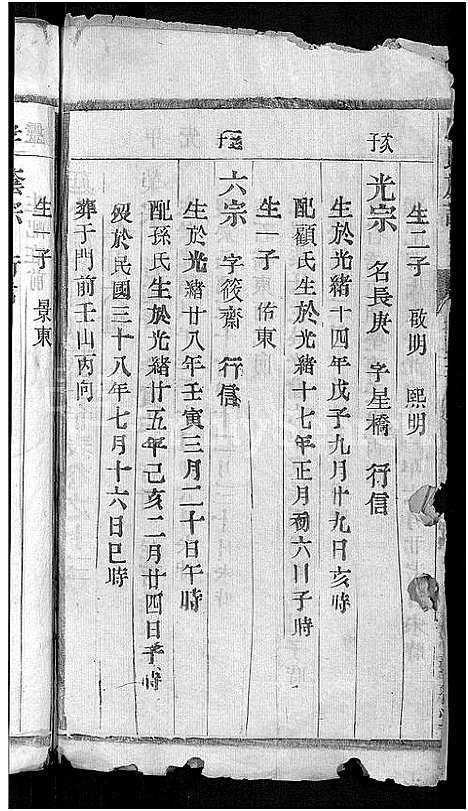 生二子 啟明 熙明
光宗 名長庚 字星橋 行信
生於光緒十四年戊子九月廿九日亥時
配顧氏生於光緒十七年正月初六日子時
生一子 佑東
六宗 字筱齋 行信
生於光緒廿八年壬寅三月二十日午時
配孫氏生於光緒廿五年己亥二月廿四日子時
歿於民國三十八年七月十六日巳時
葬于門前壬山丙向
生一子 景東